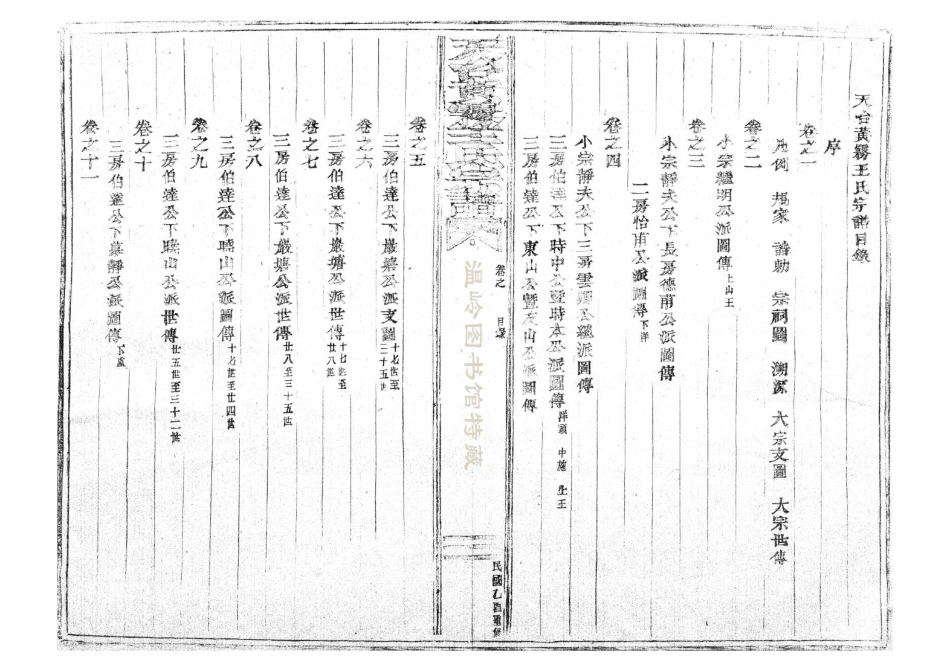 天台黃霧王氏宗譜目錄
序
卷之一
凡例 規家 誥勅 宗祠圖 溯源 大宗支圖 大宗世傳
卷之二
小宗繼明公派圖傳 上山王
卷之三
小宗靜夫公下長房德甫公派圖傳
二房怡甫公派圖傳 下洋
卷之四
小宗靜夫公下三房雲卿公總派圖傳
三房伯達公下時中公暨時本公派圖傳 洋頭 中施 上王
三房伯達公下東山公暨 山公派圖傳
天台黃霧王氏宗譜
卷之
目錄
民國乙酉重修
温岭图书馆特藏
卷之五
三房伯達公下嚴嬉公派支圖 十七世至二十五世
卷之六
三房伯達公下嚴嬉公派世傳 十七世至廿八世
卷之七
三房伯達公下嚴嬉公派世傳 廿八至三十五世
卷之八
三房伯達公下曉山公派圖傳 十七世至廿四世
卷之九
三房伯達公下曉山公派世傳 廿五世至三十一世
卷之十
三房伯達公下慕靜公派圖傳
卷之十一